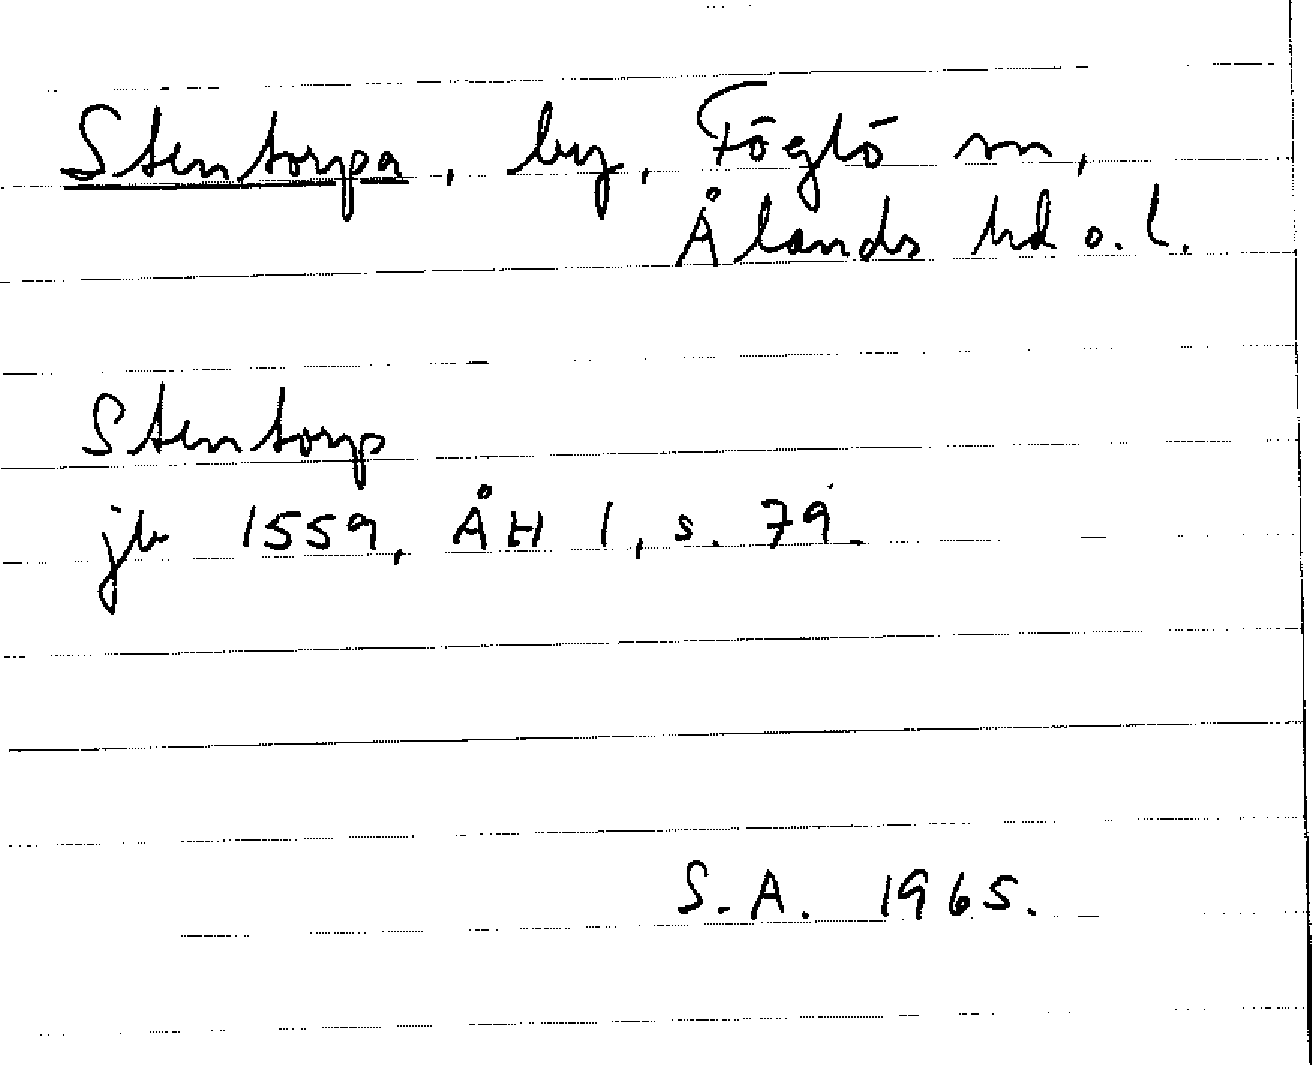 Stentorpa, by, Föglö sn,
Ålands hd o. l.
Stentorp
jb 1559, ÅH 1, s. 79.
S.A. 1965.